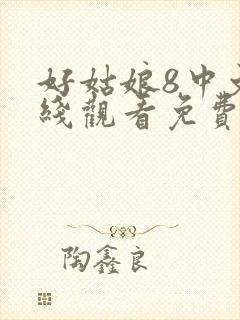 好姑娘8中文
綫觀看免費
陶鑫良